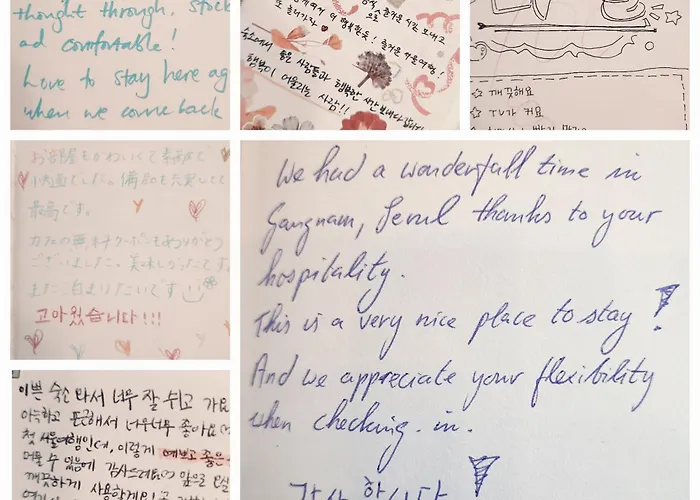 thought through. Stock
ad comfortable!
Love to stay here ag
when we come back
즐거운 시간 보내고
더 행복한듯! 즐거운 서울여행!
숙소에서 좋은 사람들과 행복한 시간 보내다 갑니다
행복이 어울리는 사람!!
깨끗해요
TV가 커요
お部屋もかわいくて素敵で
備品も充実してて
最高です。
カフェの無料クーポンもありがとう
ございました。美味しかったです
また泊まりたいです
고마웠습니다!!!
이쁜 숙소 와서 너무 잘 쉬고 가요
아늑하고 포근해서 너무너무 좋아요
첫 서울여행인데, 이렇게 예쁘고 좋은
머물 수 있음에 감사드려요
깨끗하게 사용하게 해
We had a wonderfull time in
Gangnam, Seoul thanks to your
hospitality.
This is a very nice place to stay!
And we appreciate your flexibility
when checking. in.
감사합니다